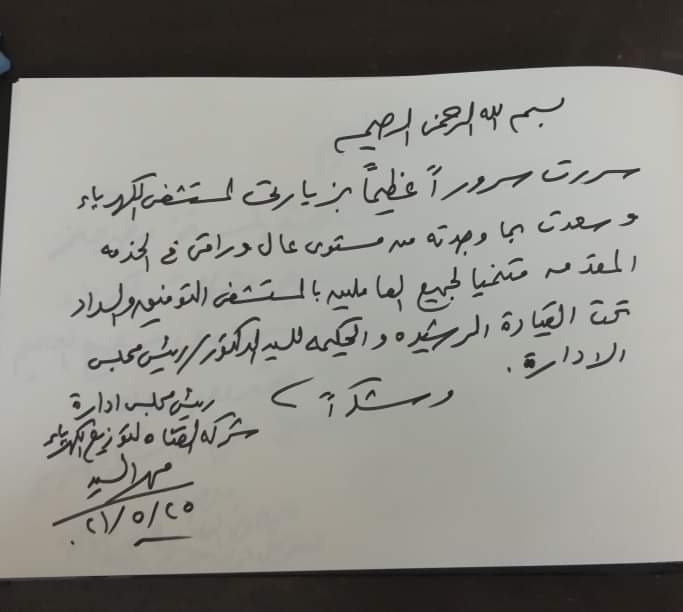 بسم الله الرحمن الرحيم
سررت سروراً عظيماً بزيارتى لمستشفى الكهرباء
وسعدت بما وجدته من مستوى عال وراقى فى الخدمه
المقدمه متمنيا لجميع العاملين بالمستشفى التوفيق والسداد
تحت القيادة الرشيده والحكيمه للسيد الدكتور/ رئيس مجلس
الادارة.
وشكراً
رئيس مجلس ادارة
شركه القناه لتوزيع الكهرباء
السيد
٢١/٥/٢٥